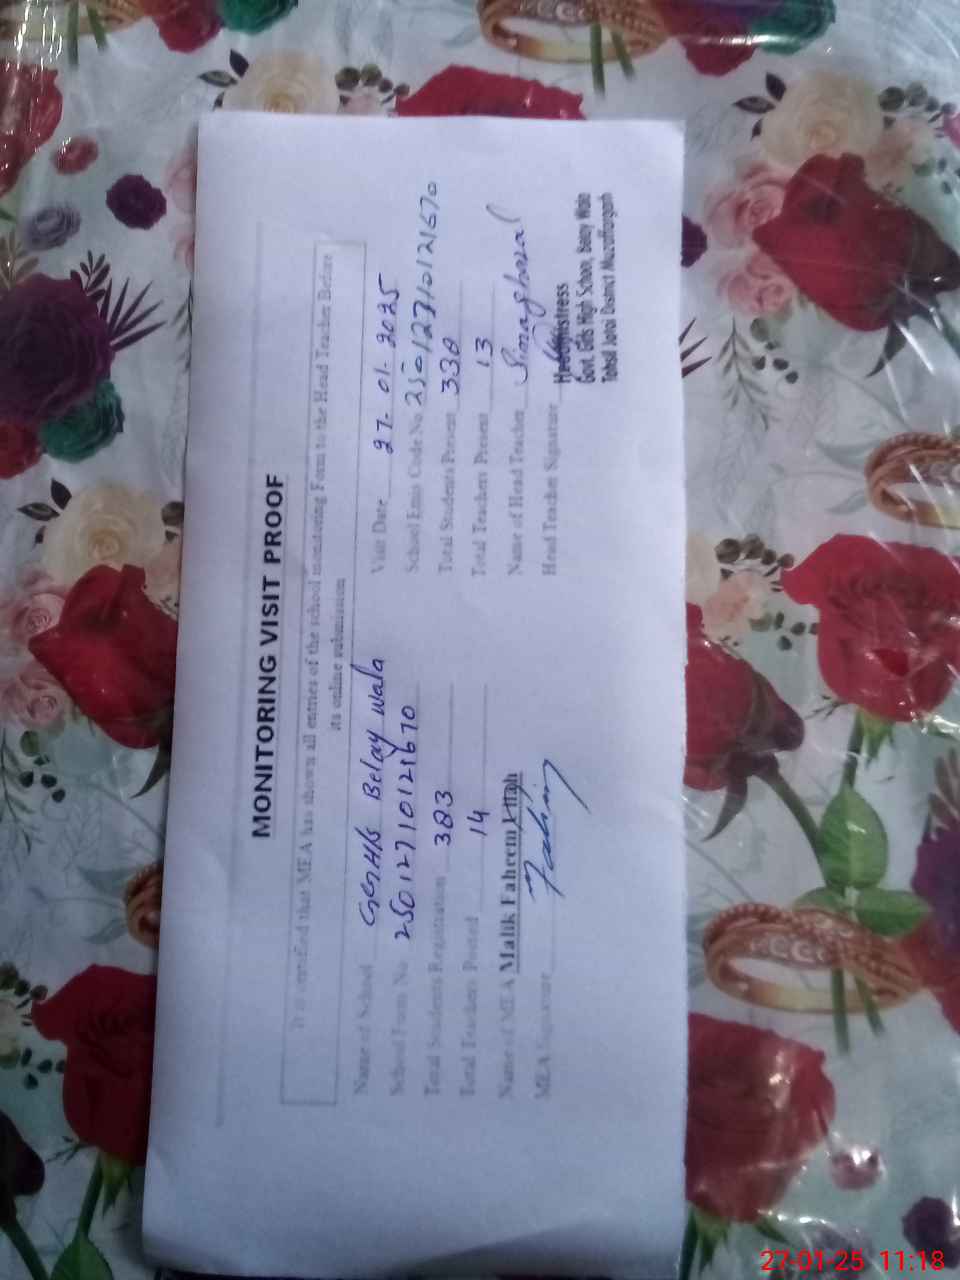 MONITORING VISIT PROOF
It is certified that MEA has shown all entries of the school monitoring Form to the Head Teacher Before
its online submission
Name of School GGHS Belay wala
Visit Date 27-01-2025
School Form No 250127101121670
School Emis Code No
Total Students Registration 383
Total Students Present 338
Total Teachers Posted 14
Total Teachers Present 13
Name of MEA Malik Faheem Ullah
Name of Head Teacher
MEA Signature Fahim
Head Teacher Signature
Headmistress
Govt. Girls High School, Belay Wala
Tehsil Jatoi District Muzaffargarh
27-01-25 11:18